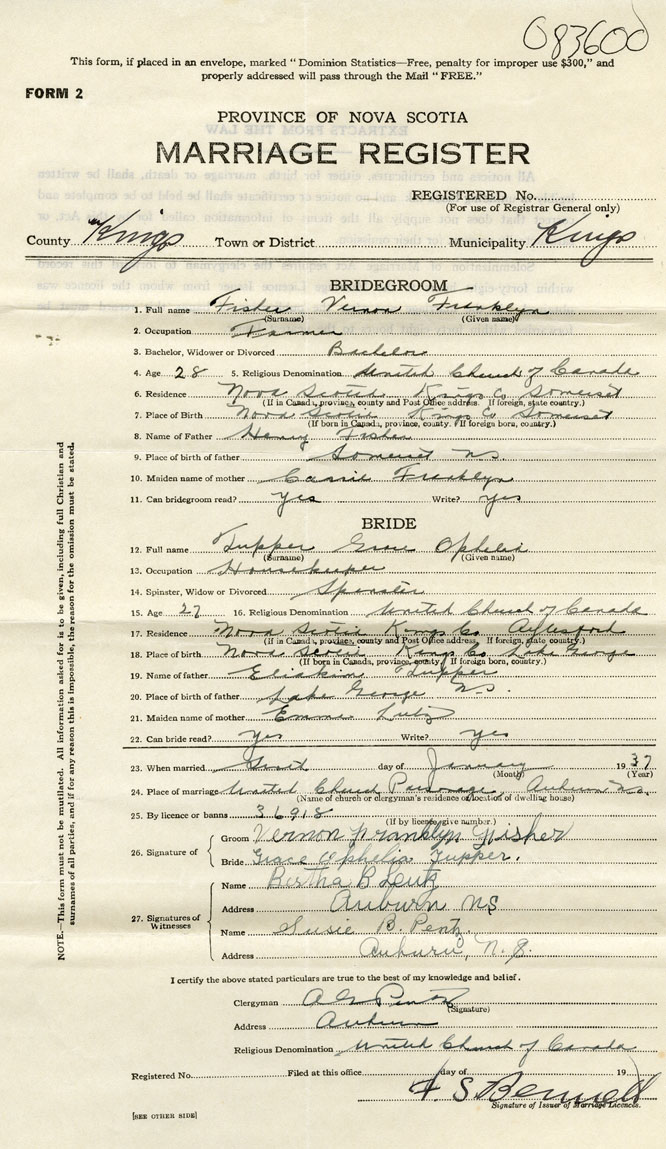 083600
This form, if placed in an envelope, marked "Dominion Statistics—Free, penalty for improper use $300," and
properly addressed will pass through the Mail "FREE."
FORM 2
PROVINCE OF NOVA SCOTIA
MARRIAGE REGISTER
REGISTERED No.
(For use of Registrar General only)
County Kings Town or District Municipality Kings
BRIDEGROOM
1. Full name Fisher Vernon Franklyn
(Surname) (Given name)
2. Occupation Farmer
3. Bachelor, Widower or Divorced Bachelor
4. Age 28 5. Religious Denomination United Church of Canada
6. Residence Nova Scotia Kings Co Somerset
(If in Canada, province, county and Post Office address. If foreign, state country.)
7. Place of Birth Nova Scotia Kings Co Somerset
(If born in Canada, province, county. If foreign born, country.)
8. Name of Father Henry Fisher
9. Place of birth of father Somerset NS
10. Maiden name of mother Cassie Franklyn
11. Can bridegroom read? Yes Write? yes
BRIDE
12. Full name Tupper Grace Ophelia
(Surname) (Given name)
13. Occupation Housekeeper
14. Spinster, Widow or Divorced Spinster
15. Age 27 16. Religious Denomination United Church of Canada
17. Residence Nova Scotia Kings Co Aylesford
(If in Canada, province, county and Post Office address. If foreign, state country.)
18. Place of birth Nova Scotia Kings Co Lake George
(If born in Canada, province, county. If foreign born, country.)
19. Name of father Eliakim Tupper
20. Place of birth of father Lake George N.S.
21. Maiden name of mother Emma Lutz
22. Can bride read? yes Write? yes
23. When married day of January 1937
(Month) (Year)
24. Place of marriage United Church Parsonage, Auburn N.S.
(Name of church or clergyman's residence or location of dwelling house)
25. By licence or banns 36918
(If by licence, give number.)
26. Signature of
Groom Vernon Franklyn Fisher
Bride Grace Ophelia Tupper.
27. Signatures of Witnesses
Name Bertha B Lutz
Address Auburn NS
Name Susie B. Pentz
Address Auburn, N.S.
I certify the above stated particulars are true to the best of my knowledge and belief.
Clergyman A G Pentz
(Signature)
Address Auburn
Religious Denomination United Church of Canada
Registered No. Filed at this office day of 19
F. S. Bennell
Signature of Issuer of Marriage Licences.
[SEE OTHER SIDE]
NOTE.—This form must not be mutilated. All information asked for is to be given, including full Christian and
surnames of all parties, and if for any reason this is impossible, the reason for the omission must be stated.